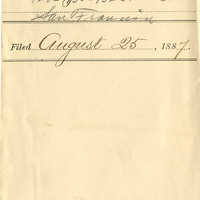 San Francisco
Filed August 25, 1887.